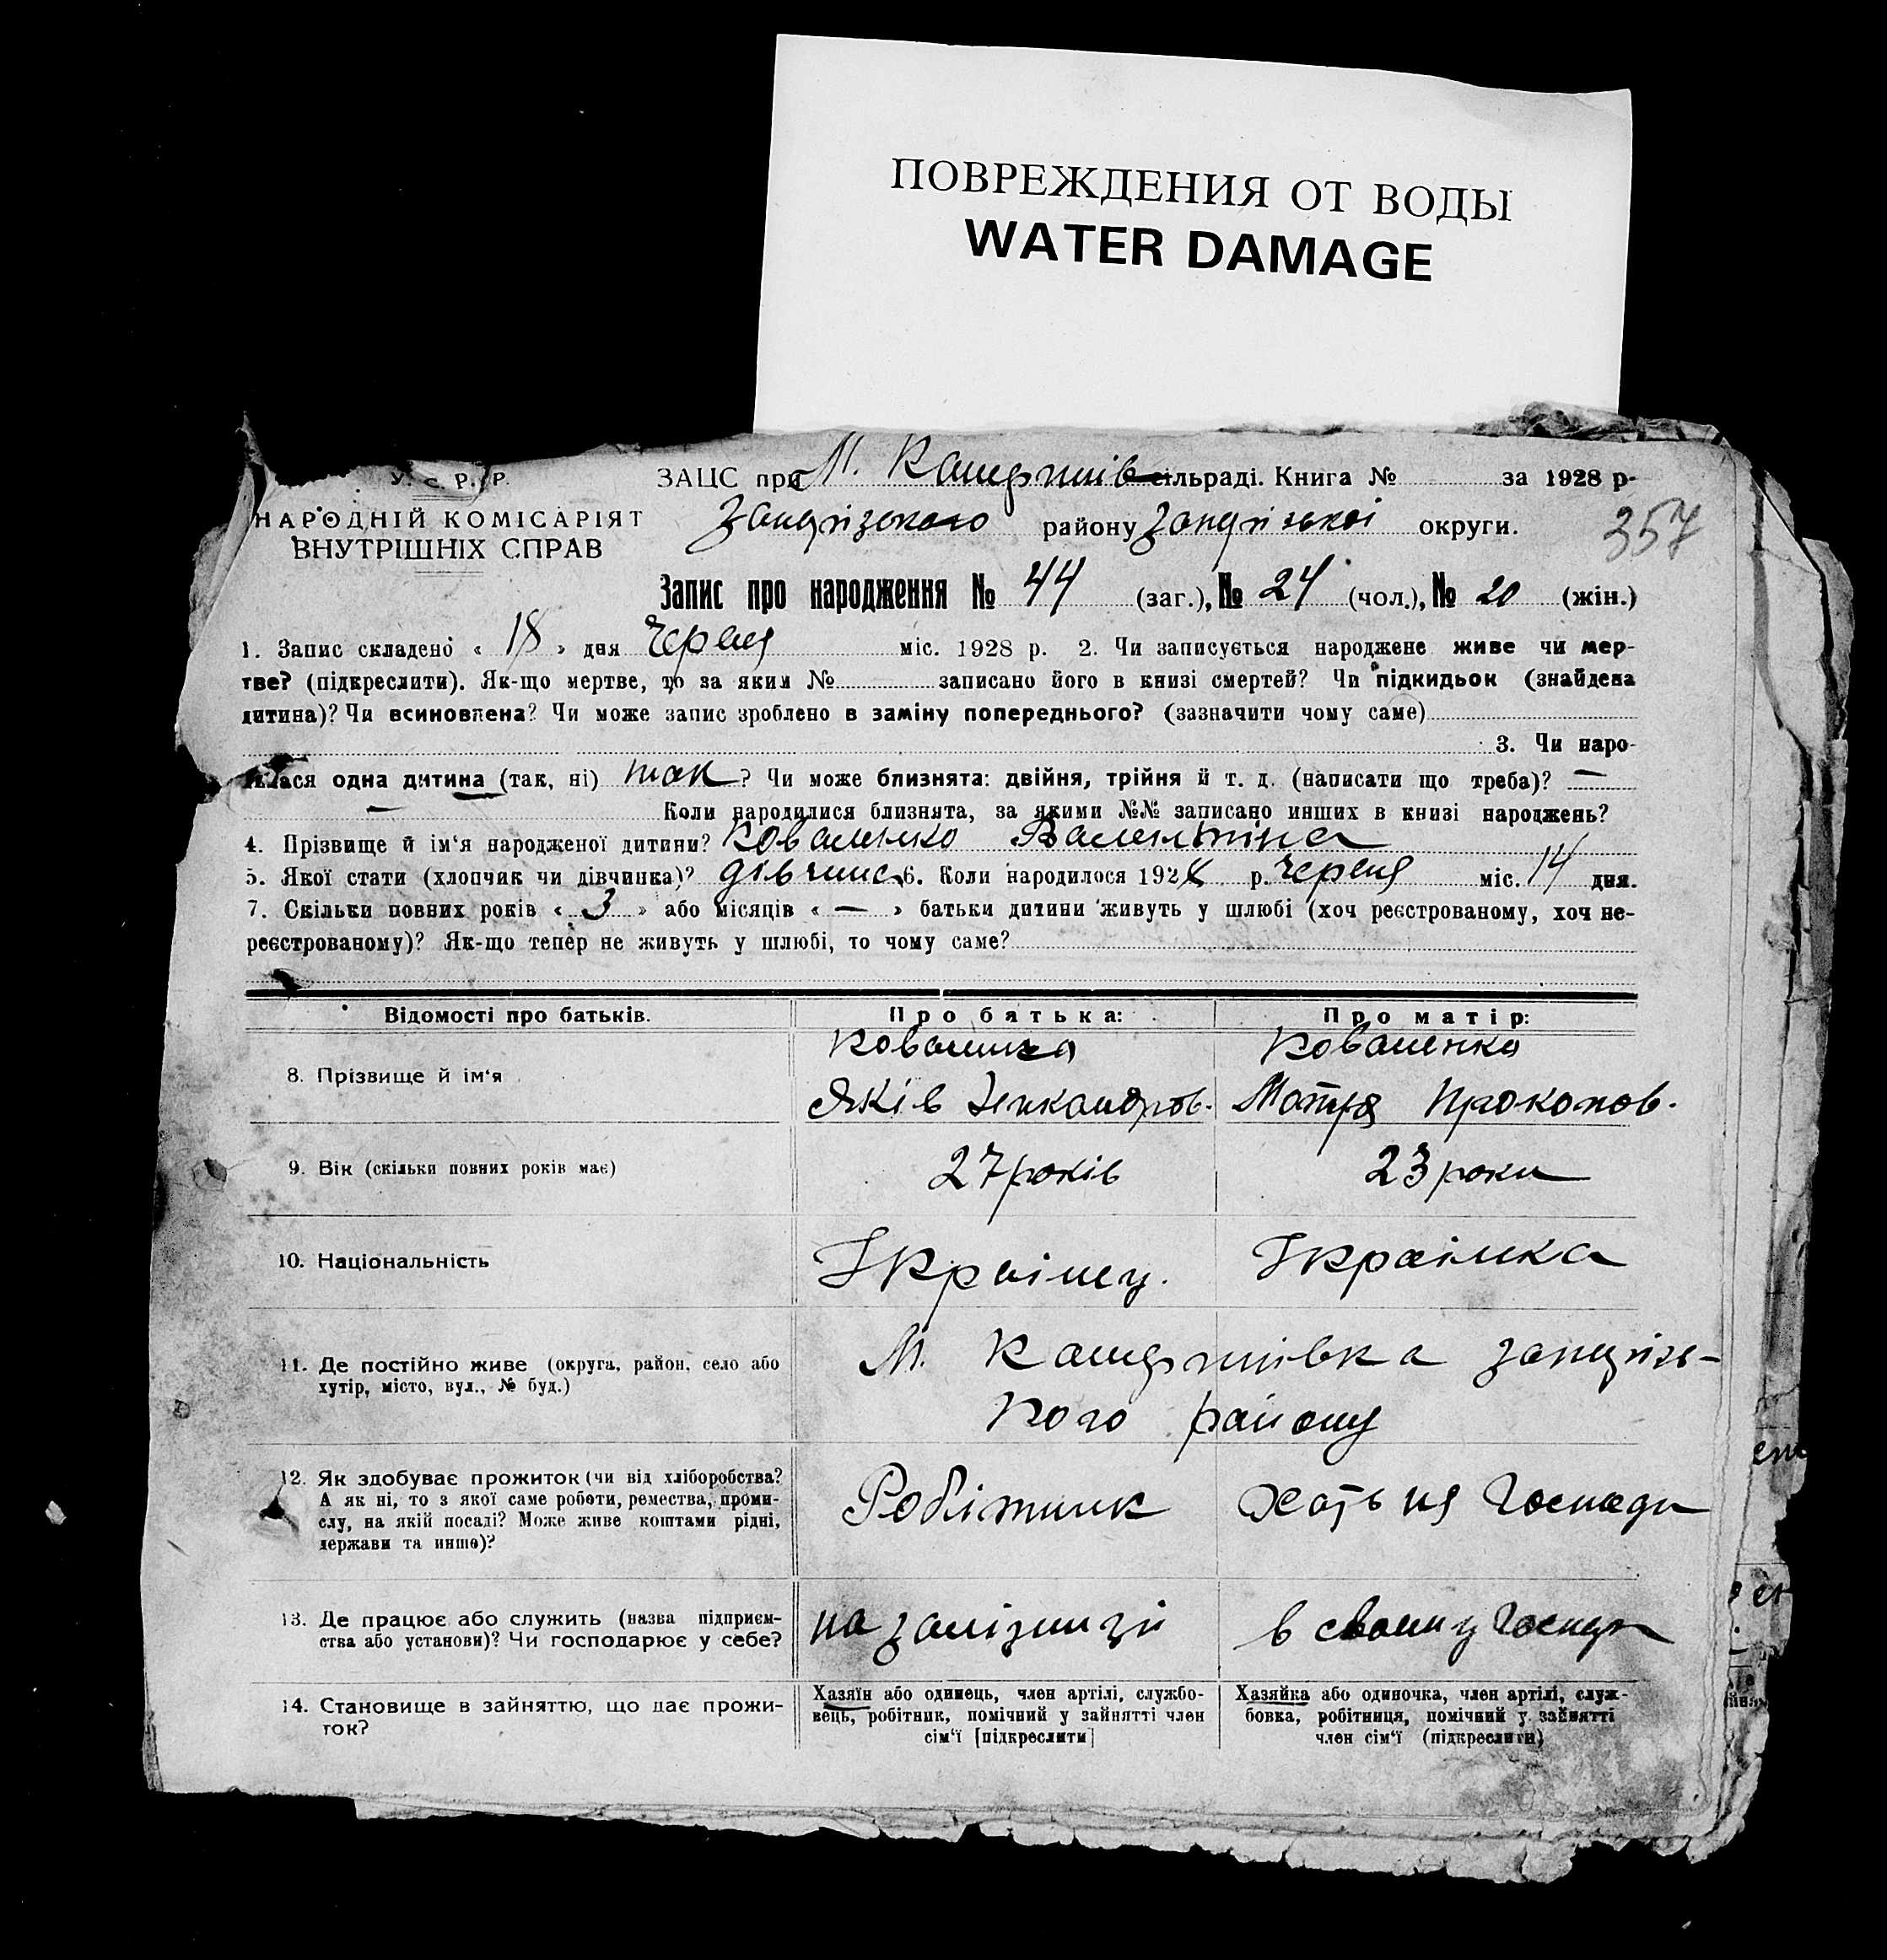 ПОВРЕЖДЕНИЯ ОТ ВОДЫ
WATER DAMAGE
У. С. Р. Р.
НАРОДНІЙ КОМІСАРІЯТ
ВНУТРІШНІХ СПРАВ
ЗАЦС при М. сільраді. Книга № за 1928 р.
району округи.
357
Запис про народження № 44 (заг.), № 24 (чол.), № 20 (жін.)
1. Запис складено « 18 » дня Червня міс. 1928 р. 2. Чи записується народжене живе чи мер-
тве? (підкреслити). Як-що мертве, то за яким № записано його в книзі смертей? Чи підкидьок (знайдена
дитина)? Чи всиновлена? Чи може запис зроблено в заміну попереднього? (зазначити чому саме)
3. Чи наро-
дилася одна дитина (так, ні) так ? Чи може близнята: двійня, трійня й т. д. (написати що треба)? —
— Коли народилися близнята, за якими №№ записано инших в книзі народжень?
4. Прізвище й ім‘я народженої дитини? Коваленко Валентіна
5. Якої стати (хлопчик чи дівчинка)? дівчина 6. Коли народилося 1928 р. Червня міс. 14 дня.
7. Скільки повних років « 3 » або місяців « — » батьки дитини живуть у шлюбі (хоч реєстрованому, хоч не-
реєстрованому)? Як-що тепер не живуть у шлюбі, то чому саме?
Відомості про батьків. Про батька: Про матір:
8. Прізвище й ім‘я Коваленко Коваленко
Яків Мотря Прокопов.
9. Вік (скільки повних років має) 27 років 23 роки
10. Національність Українец. Українка
11. Де постійно живе (округа, район, село або
хутір, місто, вул., № буд.)
М.
кого району
12. Як здобуває прожиток (чи від хліборобства?
А як ні, то з якої саме роботи, ремества, проми-
слу, на якій посаді? Може живе коштами рідні,
держави та инше)?
Робітник Хатьня Господи
13. Де працює або служить (назва підприєм-
ства або установи)? Чи господарює у себе?
на залізниці в своему
14. Становище в зайняттю, що дає прожи-
ток?
Хазяїн або одинець, член артілі, службо-
вець, робітник, помічний у зайнятті член
сім‘ї [підкреслити]
Хазяйка або одиночка, член артілі, служ-
бовка, робітниця, помічний у зайнятті
член сім‘ї (підкреслити)